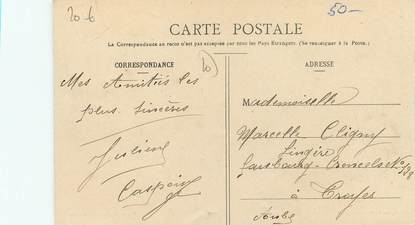 20-6
50-
CARTE POSTALE
La Correspondance au recto n'est pas acceptée par tous les Pays Etrangers. (Se renseigner à la Poste.)
CORRESPONDANCE
20
Mes Amitiés les
plus sincères
Julien
ADRESSE
Mademoiselle
Marcelle Cligny
Lingère
Croncels No
à Troyes
Aube